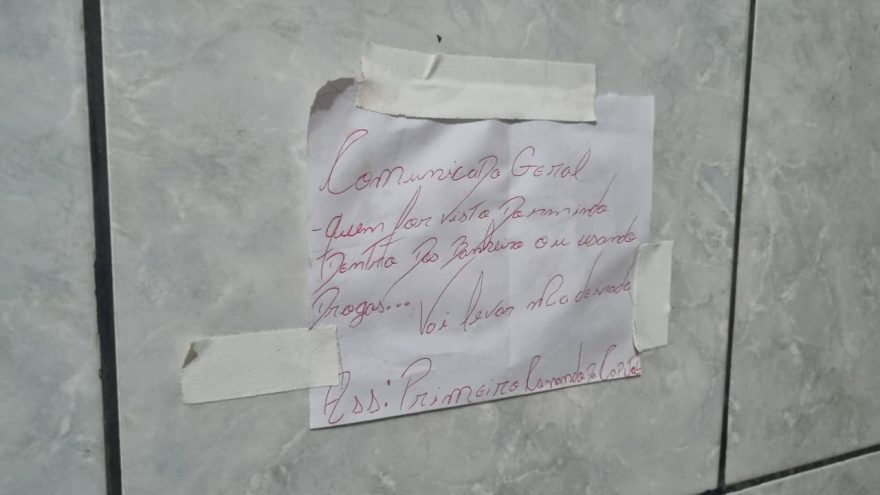 Comunicado Geral
- quem for visto Dormindo
Dentro Dos Banheiro ou usando
Drogas... Vai levar madeirada
Ass: Primeiro Comando Da Capital